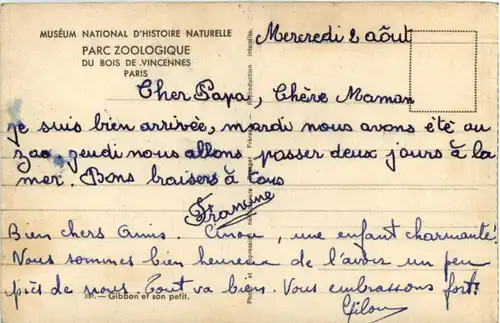 MUSÉUM NATIONAL D'HISTOIRE NATURELLE
PARC ZOOLOGIQUE
DU BOIS DE VINCENNES
PARIS
Mercredi 2 aôut
Cher Papa, Chère Maman
je suis bien arrivée, mardi nous avons été au
zoo jeudi nous allons passer deux jours à la
mer. Bons baisers à tous
Francine
Bien chers amis, une enfant charmante!
Nous sommes bien heureux de l'avoir un peu
près de nous. Tout va bien. Vous embrassons fort.
Gibbon et son petit.